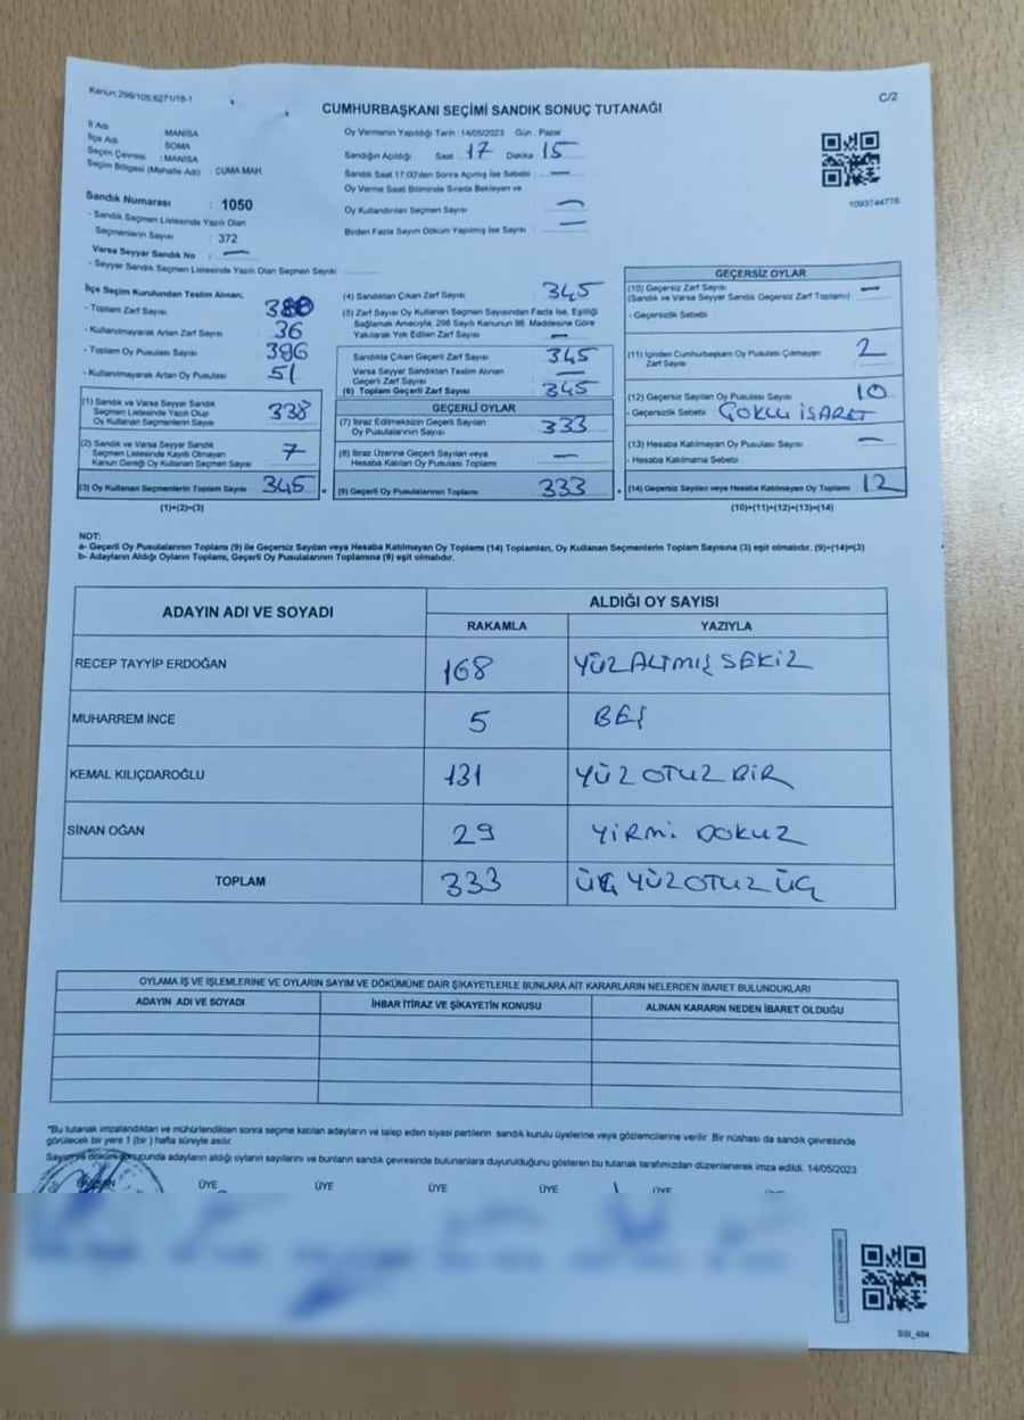 CUMHURBAŞKANI SEÇİMİ SANDIK SONUÇ TUTANAĞI
C/2
İl Adı : MANİSA
İlçe Adı : SOMA
Seçim Çevresi : MANİSA
Seçim Bölgesi (Mahalle Adı) : CUMA MAH.
Oy Vermenin Yapıldığı Tarih : 14/05/2023 Gün : Pazar
Sandığın Açıldığı Saat 17 Dakika 15
Sandık Saat 17:00'den Sonra Açılmış İse Sebebi —
Oy Verme Saat Bitiminde Sırada Bekleyen ve
Oy Kullandırılan Seçmen Sayısı —
Birden Fazla Sayım Döküm Yapılmış İse Sayısı —
1093744776
Sandık Numarası : 1050
- Sandık Seçmen Listesinde Yazılı Olan
Seçmenlerin Sayısı : 372
Varsa Seyyar Sandık No : —
- Seyyar Sandık Seçmen Listesinde Yazılı Olan Seçmen Sayısı
İlçe Seçim Kurulundan Teslim Alınan;
- Toplam Zarf Sayısı
- Kullanılmayarak Artan Zarf Sayısı 36
- Toplam Oy Pusulası Sayısı 396
- Kullanılmayarak Artan Oy Pusulası 51
(1) Sandık ve Varsa Seyyar Sandık
Seçmen Listesinde Yazılı Olup
Oy Kullanan Seçmenlerin Sayısı 338
(2) Sandık ve Varsa Seyyar Sandık
Seçmen Listesinde Kayıtlı Olmayan
Kanun Gereği Oy Kullanan Seçmen Sayısı 7
(3) Oy Kullanan Seçmenlerin Toplam Sayısı 345
(1)+(2)=(3)
(4) Sandıktan Çıkan Zarf Sayısı 345
(5) Zarf Sayısı Oy Kullanan Seçmen Sayısından Fazla İse, Eşitliği
Sağlamak Amacıyla, 298 Sayılı Kanunun 98. Maddesine Göre
Yakılarak Yok Edilen Zarf Sayısı —
Sandıkta Çıkan Geçerli Zarf Sayısı 345
Varsa Seyyar Sandıktan Teslim Alınan
Geçerli Zarf Sayısı —
(6) Toplam Geçerli Zarf Sayısı 345
GEÇERLİ OYLAR
(7) İtiraz Edilmeksizin Geçerli Sayılan
Oy Pusulalarının Sayısı 333
(8) İtiraz Üzerine Geçerli Sayılan veya
Hesaba Katılan Oy Pusulası Toplamı —
(9) Geçerli Oy Pusulalarının Toplamı 333
GEÇERSİZ OYLAR
(10) Geçersiz Zarf Sayısı
(Sandık ve Varsa Seyyar Sandık Geçersiz Zarf Toplamı) —
- Geçersizlik Sebebi
(11) İçinden Cumhurbaşkanı Oy Pusulası Çıkmayan
Zarf Sayısı 2
(12) Geçersiz Sayılan Oy Pusulası Sayısı 10
- Geçersizlik Sebebi ÇOKLU İŞARET
(13) Hesaba Katılmayan Oy Pusulası Sayısı —
- Hesaba Katılmama Sebebi
(14) Geçersiz Sayılan veya Hesaba Katılmayan Oy Toplamı 12
(10)+(11)+(12)+(13)=(14)
NOT:
a- Geçerli Oy Pusulalarının Toplamı (9) ile Geçersiz Sayılan veya Hesaba Katılmayan Oy Toplamı (14) Toplamları, Oy Kullanan Seçmenlerin Toplam Sayısına (3) eşit olmalıdır. (9)+(14)=(3)
b- Adayların Aldığı Oyların Toplamı, Geçerli Oy Pusulalarının Toplamına (9) eşit olmalıdır.
ADAYIN ADI VE SOYADI
ALDIĞI OY SAYISI
RAKAMLA YAZIYLA
RECEP TAYYİP ERDOĞAN 168 YÜZ ALTMIŞ SEKİZ
MUHARREM İNCE 5 BEŞ
KEMAL KILIÇDAROĞLU 131 YÜZ OTUZ BİR
SİNAN OĞAN 29 YİRMİ DOKUZ
TOPLAM 333 ÜÇ YÜZ OTUZ ÜÇ
OYLAMA İŞ VE İŞLEMLERİNE VE OYLARIN SAYIM VE DÖKÜMÜNE DAİR ŞİKAYETLERLE BUNLARA AİT KARARLARIN NELERDEN İBARET BULUNDUKLARI
ADAYIN ADI VE SOYADI İHBAR İTİRAZ VE ŞİKAYETİN KONUSU ALINAN KARARIN NEDEN İBARET OLDUĞU
*Bu tutanak imzalandıktan ve mühürlendikten sonra seçime katılan adayların ve talep eden siyasi partilerin sandık kurulu üyelerine veya gözlemcilerine verilir. Bir nüshası da sandık çevresinde
görülecek bir yere 1 (bir) hafta süreyle asılır.
Sayım ve döküm sonucunda adayların aldığı oyların sayılarını ve bunların sandık çevresinde bulunanlara duyurulduğunu gösteren bu tutanak tarafımızdan düzenlenerek imza edildi. 14/05/2023
ÜYE ÜYE ÜYE ÜYE ÜYE